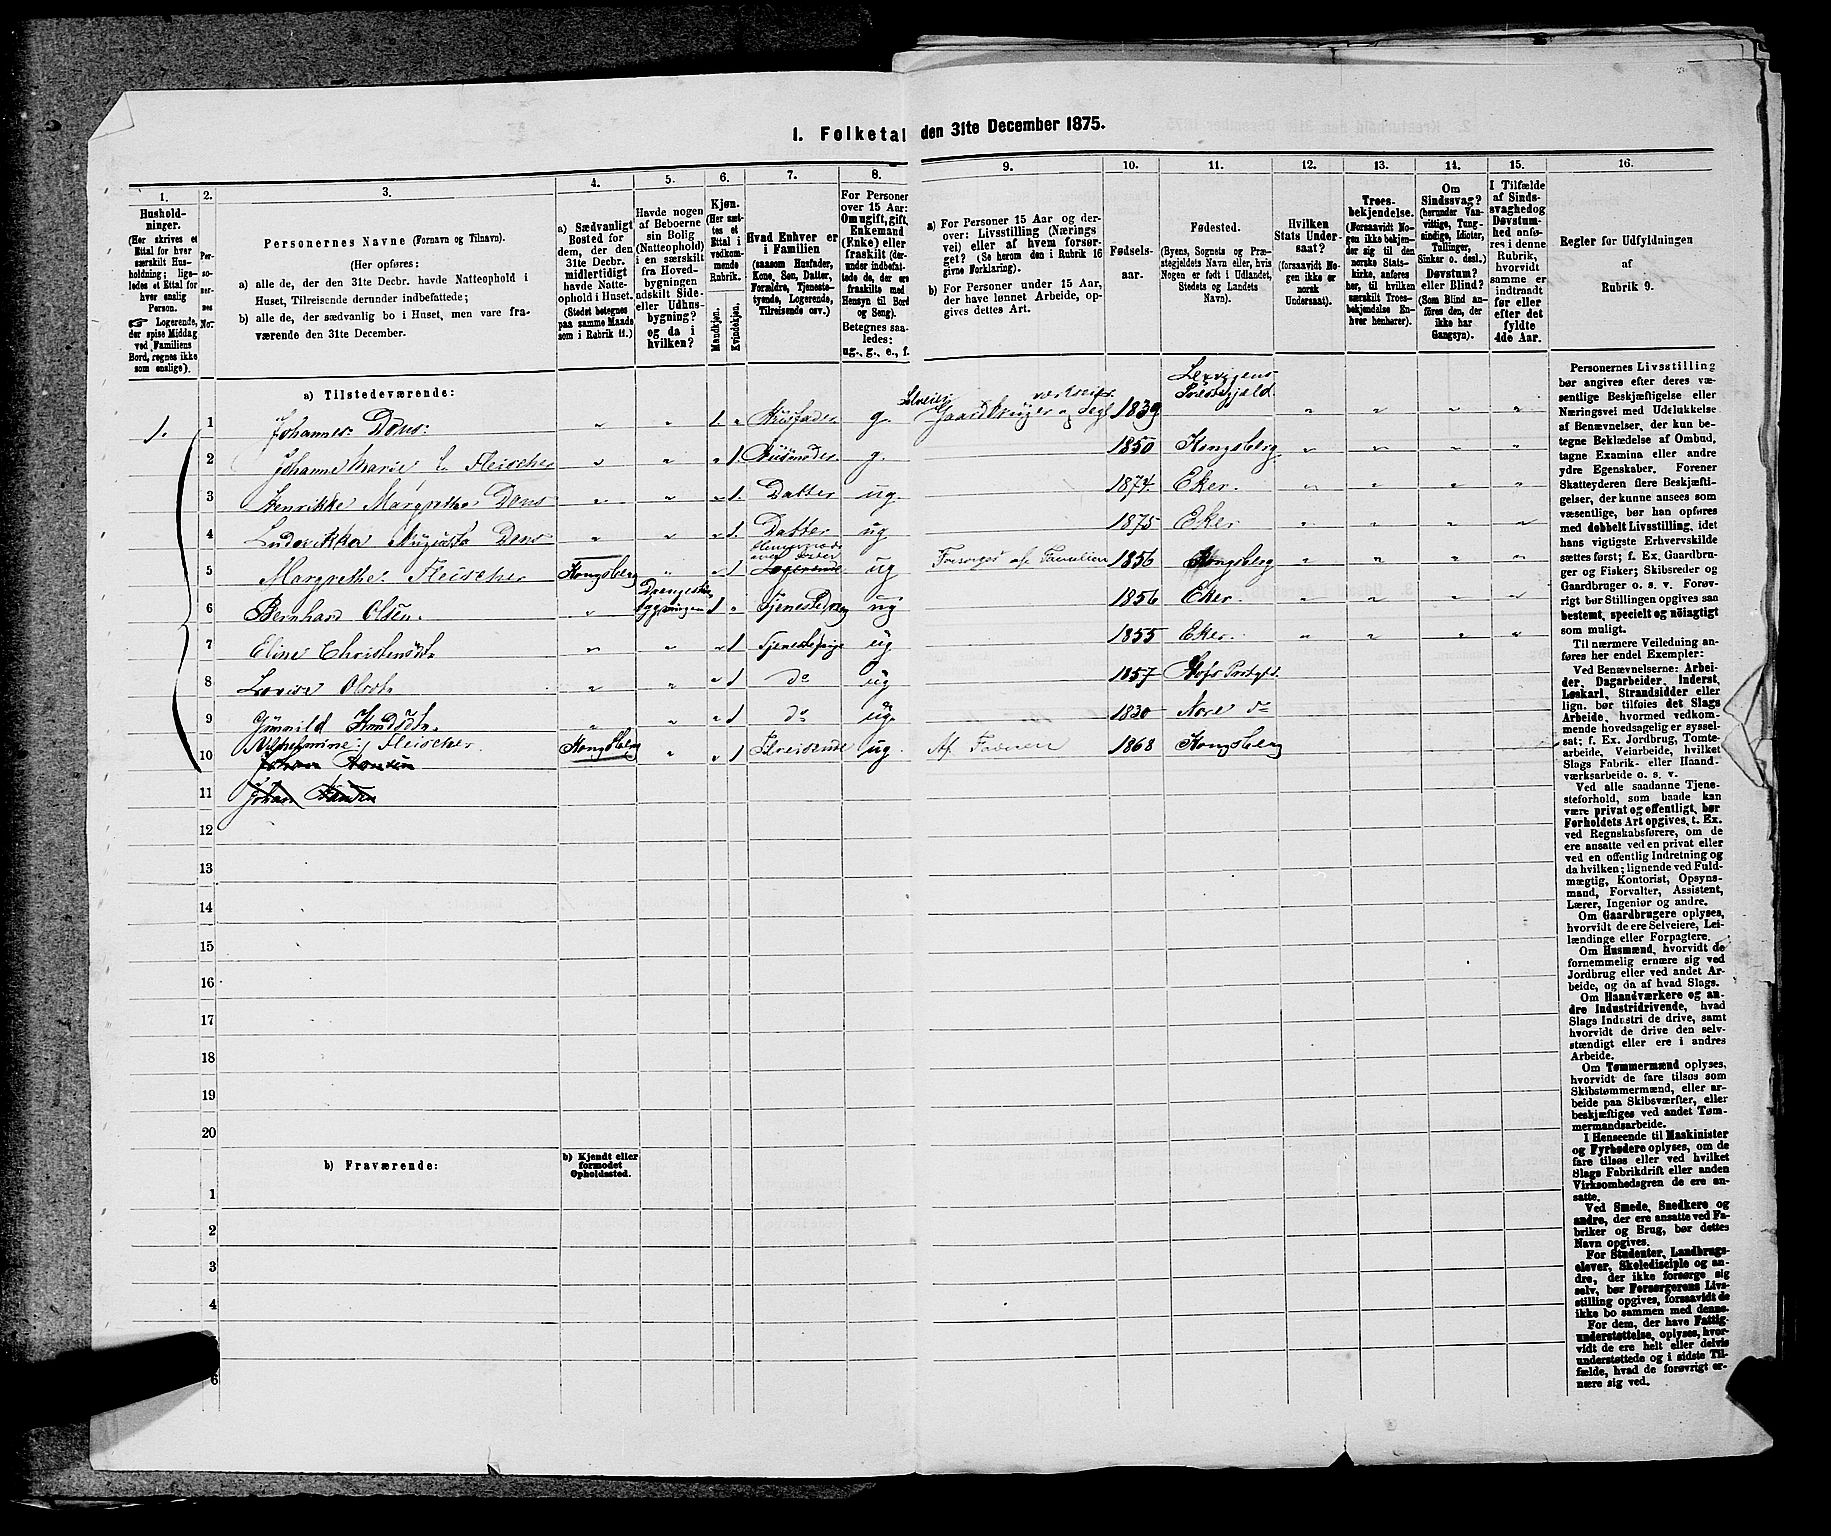 1. Folketal den 31te December 1875.
1.
Hushold-
ninger.
(Her skrives et
Ettal for hver
særskilt Hus-
holdning; lige-
ledes et Ettal for
hver enslig
Person.
☞ Logerende,
der spise Middag
ved Familiens
Bord, regnes ikke
som enslige).
2.
Per-
so-
ner-
nes
No.
3.
Personernes Navne (Fornavn og Tilnavn).
(Her opføres:
a) alle de, der den 31te Decbr. havde Natteophold i
Huset, Tilreisende derunder indbefattede;
b) alle de, der sædvanlig bo i Huset, men vare fra-
værende den 31te December.
4.
a) Sædvanligt
Bosted for
dem, der den
31te Decbr.
midlertidigt
havde Natte-
ophold i Huset.
(Stedet betegnes
paa samme Maade
som i Rubrik 11.)
5.
Havde nogen
af Beboerne
sin Bolig
(Natteophold)
i en særskilt
fra Hoved-
bygningen
adskilt Side-
eller Udhus-
bygning?
og da i
hvilken?
6.
Kjøn.
(Her sæt-
tes et
Ettal i
vedkom-
mende
Rubrik.
Mandkjøn.
Kvindekjøn.
7.
Hvad Enhver er
i Familien
(saasom Husfader,
Kone, Søn, Datter,
Forældre, Tjeneste-
tyende, Logerende,
Tilreisende osv.)
8.
For Personer
over 15 Aar:
Om ugift, gift,
Enkemand
(Enke) eller
fraskilt (der-
under indbefat-
tede de, der ere
fraskilte med
Hensyn til Bord
og Seng).
Betegnes saa-
ledes:
ug., g., e., f.
9.
a) For Personer 15 Aar og der-
over: Livsstilling (Nærings
vei) eller af hvem forsør-
get? (Se herom den i Rubrik 16
givne Forklaring).
b) For Personer under 15 Aar,
der have lønnet Arbeide, op-
gives dettes Art.
10.
Fødsels-
aar.
11.
Fødested.
(Byens, Sognets og Præ-
stegjeldets Navn eller, hvis
Nogen er født i Udlandet,
Stedets og Landets
Navn).
12.
Hvilken
Stats Under-
saat?
(forsaavidt No-
gen ikke er
norsk
Undersaat).
13.
Troes-
bekjendelse.
(Forsaavidt No-
gen ikke bekjen-
der sig til den
norske Stats-
kirke, anføres
her, til hvilken
særskilt Troes-
bekjendelse En-
hver henhører).
14.
Om
Sindssvag?
(herunder Van-
vittige, Tung-
sindige, Idioter,
Tullinger,
Sinker o. desl.)
Døvstum?
eller Blind?
(Som Blind an-
føres den, der
ikke har
Gangsyn).
15.
I Tilfælde
af Sinds-
svaghed og
Døvstum-
hed anfø-
res i denne
Rubrik,
hvorvidt
samme er
indtraadt
før eller
efter det
fyldte
4de Aar.
16.
Regler for Udfyldningen
af
Rubrik 9.
a) Tilstedeværende:
1. 1 Johannes Dons: " " 1. " Husfader g. Selveier Gaardbruger og 1839 Præstegjeld " " " "
2 Johanne Marie f. Fleischer " " " 1. Husmoder g. 1850 Kongsberg " " " "
3 Henrikke Margrethe Dons " " " 1. Datter ug. 1874. Eker " " " "
4 Ludovikka Augusta Dons " " " 1. Datter ug 1875 Eker " " " "
5 Margrethe Fleischer Kongsberg " " 1 Logerende ug Forsørges af Familien 1856 Kongsberg " " " "
6 Bernhard Olsen. " bygningen 1 " Tjenestedreng ug 1856 Eker. " " " "
7 Eline Christensdtr " " " 1 Tjenestepige ug 1855 Eker. " " " "
8 Lovise Olsdtr " " " 1 do ug 1857
9 Gunnild Knudsdtr. " " " 1 do ug. 1830 Nore do
10 Vilhelmine Fleischer. Kongsberg " " 1 Tilreisende ug. Af Faderen 1868 Kongsberg
Johan Hansen
11 Johan Hansen
12
13
14
15
16
17
18
19
20
b) Fraværende:
b) Kjendt eller
formodet
Opholdssted.
1
2
3
4
5
6
Personernes Livsstilling
bør angives efter deres væ-
sentlige Beskjæftigelse eller
Næringsvei med Udelukkelse
af Benævnelser, der kun be-
tegne Beklædelse af Ombud,
tagne Examina eller andre
ydre Egenskaber. Forener
Skatteyderen flere Beskjæfti-
gelser, der kunne ansees som
væsentlige, bør han opføres
med dobbelt Livsstilling, idet
hans vigtigste Erhvervskilde
sættes først; f. Ex. Gaardbru-
ger og Fisker; Skibsreder og
Gaardbruger o. s. v. Forøv-
rigt bør Stillingen opgives saa
bestemt, specielt og nøiagtigt
som muligt.
Til nærmere Veiledning an-
føres her endel Exempler:
Ved Benævnelserne: Arbei-
der, Dagarbeider, Inderst,
Løskarl, Strandsidder eller
lign. bør tilføies det Slags
Arbeide, hvormed vedkom-
mende hovedsagelig er syssel-
sat; f. Ex. Jordbrug, Tomte-
arbeide, Veiarbeide, hvilket
Slags Fabrik- eller Haand-
værksarbeide o. s. v.
Ved alle saadanne Tjene-
steforhold, som baade kan
være privat og offentligt, bør
Forholdets Art opgives, t. Ex.
ved Regnskabsførere, om de
ere ansatte ved en privat eller
ved en offentlig Indretning og
da hvilken; lignende ved Fuld-
mægtig, Kontorist, Opsyns-
mand, Forvalter, Assistent,
Lærer, Ingeniør og andre.
Om Gaardbrugere oplyses,
hvorvidt de ere Selveiere, Lei-
lændinge eller Forpagtere.
Om Husmænd, hvorvidt de
fornemmelig ernære sig ved
Jordbrug eller ved andet Ar-
beide, og da af hvad Slags.
Om Haandværkere og an-
dre Industridrivende, hvad
Slags Industri de drive, samt
hvorvidt de drive den selv-
stændigt eller ere i andres
Arbeide.
Om Tømmermænd oplyses,
hvorvidt de fare tilsøs som
Skibstømmermænd, eller ar-
beide paa Skibsværfter, eller
beskjæftiges ved andet Tøm-
mermandsarbeide.
I Henseende til Maskinister
og Fyrbødere oplyses, om de
fare tilsøs eller ved hvilket
Slags Fabrikdrift eller anden
Virksomhedsgren de ere an-
satte.
Ved Smede, Snedkere og
andre, der ere ansatte ved Fa-
briker og Brug, bør dettes
Navn opgives.
For Studenter, Landbrugs-
elever, Skoledisciple og an-
dre, der ikke forsørge sig
selv, bør Forsørgerens Livs-
stilling opgives, forsaavidt de
ikke bo sammen med denne.
For dem, der have Fattig-
understøttelse, oplyses, hvor-
vidt de ere helt eller delvis
understøttede og i sidste Til-
fælde, hvad de forøvrigt er-
nære sig ved.